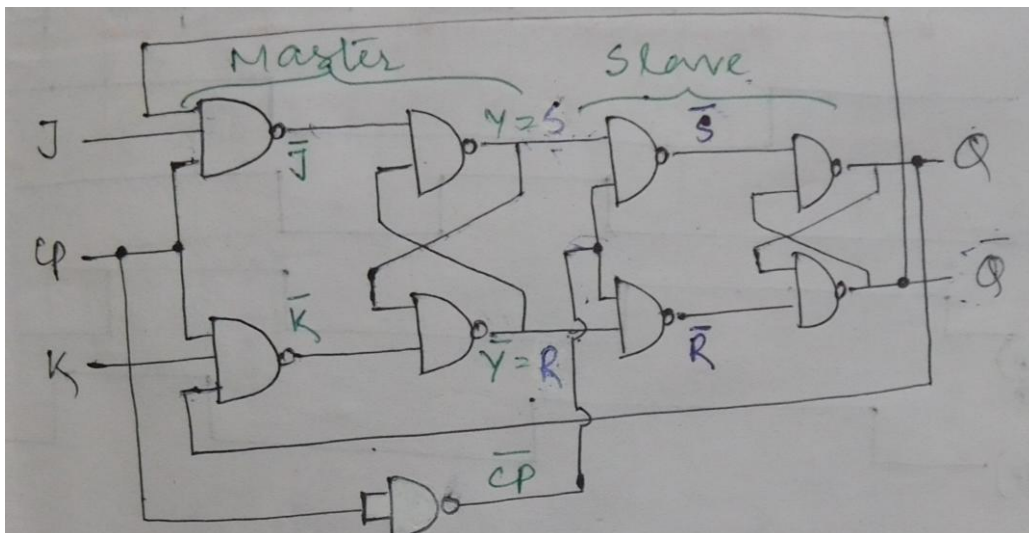 Master
Slave
J
J̅
Y = S
S̅
Q
CP
Q̅
K
K̅
Y̅ = R
R̅
C̅P̅